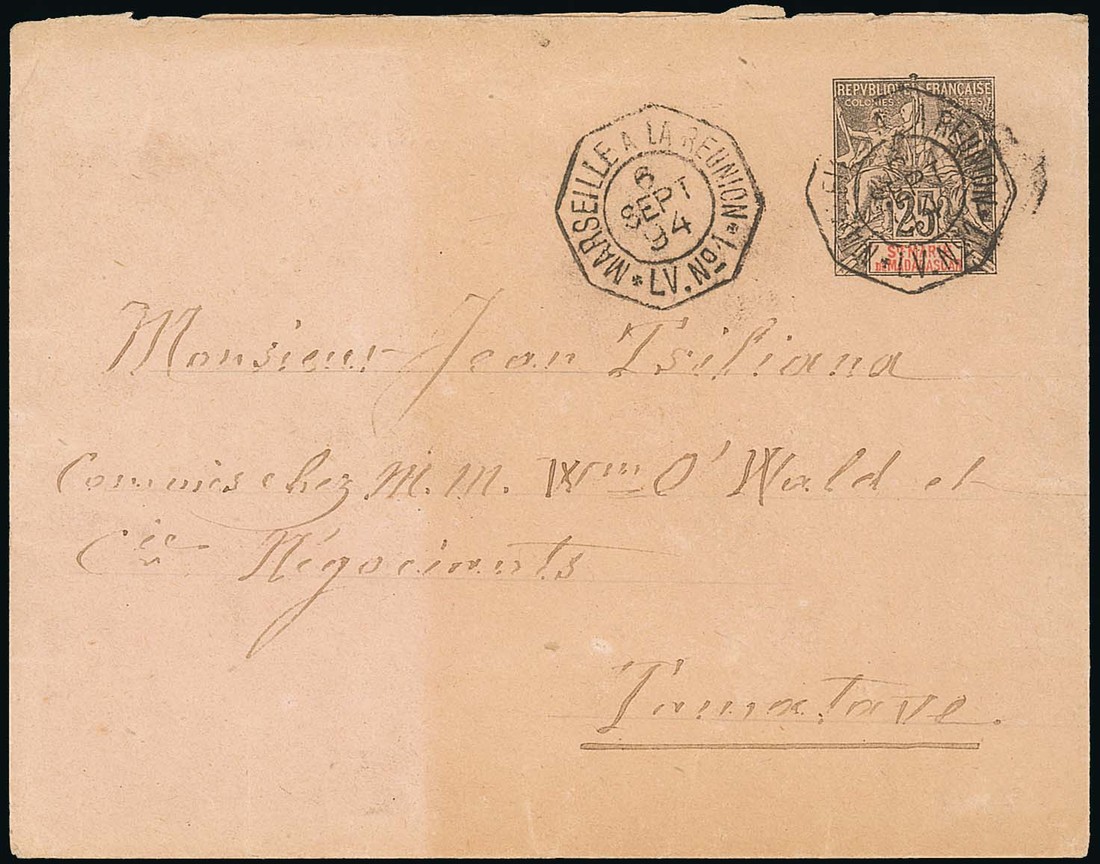 REPVBLIQUE FRANÇAISE
COLONIES POSTES
25
STE MARIE
DE MADAGASCAR
MARSEILLE A LA REUNION * LV. No 1 *
6
SEPT
94
REUNION * LV. N
Monsieur Jean Tsiliana
Commis chez M.M. Wm O'Wald et
Cie Négociants
Tamatave.